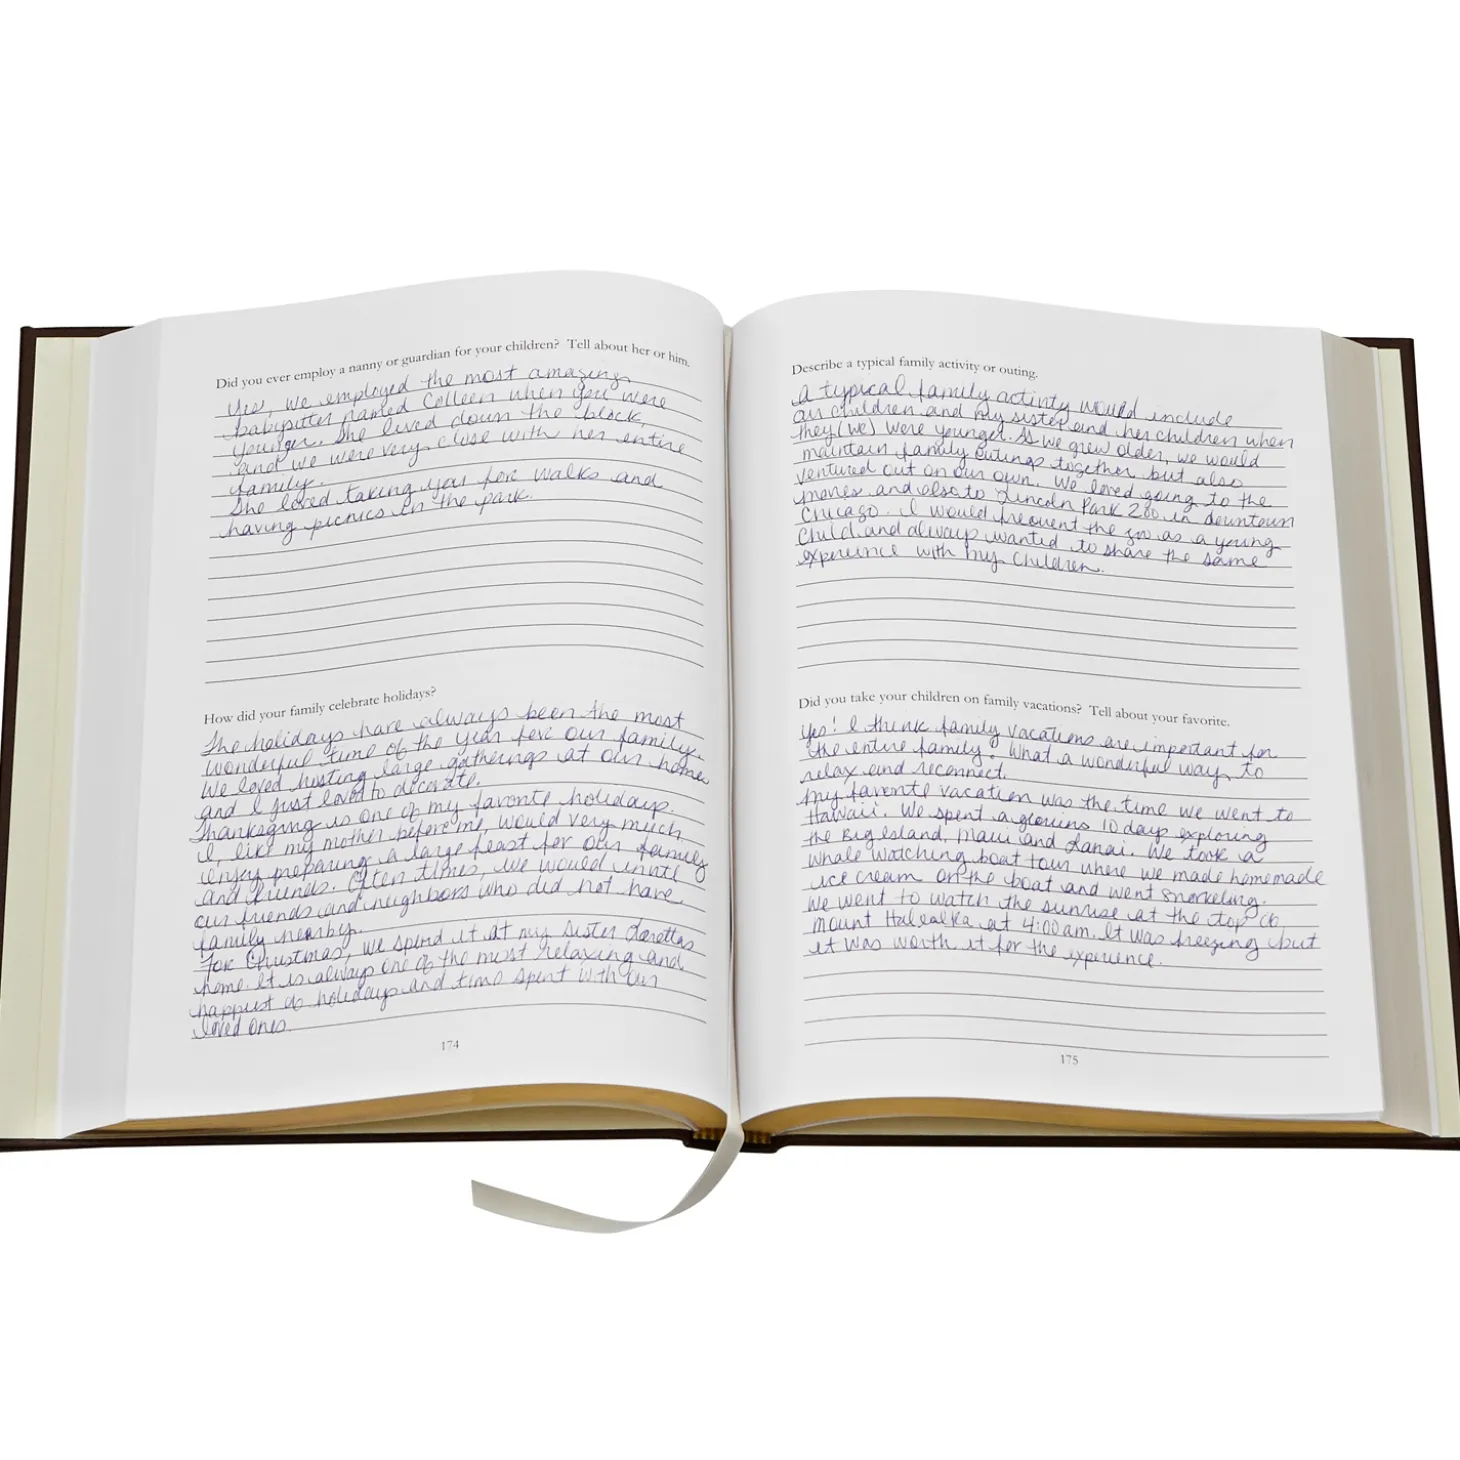 Did you ever employ a nanny or guardian for your children? Tell about her or him.
Yes, we employed the most amazing
babysitter named Colleen when you were
younger. She lived down the block,
and we were very close with her entire
family.
She loved taking you for walks and
having picnics in the park.
How did your family celebrate holidays?
The holidays have always been the most
wonderful time of the year for our family.
We loved hosting large gatherings at our home
and I just loved to decorate.
Thanksgiving is one of my favorite holidays.
I, like my mother before me, would very much
enjoy preparing a large feast for our family
and friends. Often times, we would invite
our friends and neighbors who did not have
family nearby.
For Christmas, we spend it at my sister Loretta's
home. It is always one of the most relaxing and
happiest of holidays and time spent with our
loved ones.
174
Describe a typical family activity or outing.
A typical family activity would include
our children and my sister and her children when
they (we) were younger. As we grew older, we would
maintain family outings together, but also
ventured out on our own. We loved going to the
movies and also to Lincoln Park Zoo in downtown
Chicago. I would frequent the zoo as a young
child and always wanted to share the same
experience with my children.
Did you take your children on family vacations? Tell about your favorite.
Yes! I think family vacations are important for
the entire family. What a wonderful way to
relax and reconnect.
My favorite vacation was the time we went to
Hawaii. We spent a glorious 10 days exploring
the Big Island, Maui and Lanai. We took a
whale watching boat tour where we made homemade
ice cream on the boat and went snorkeling.
We went to watch the sunrise at the top of
Mount Halealka at 4:00am. It was freezing but
it was worth it for the experience.
175